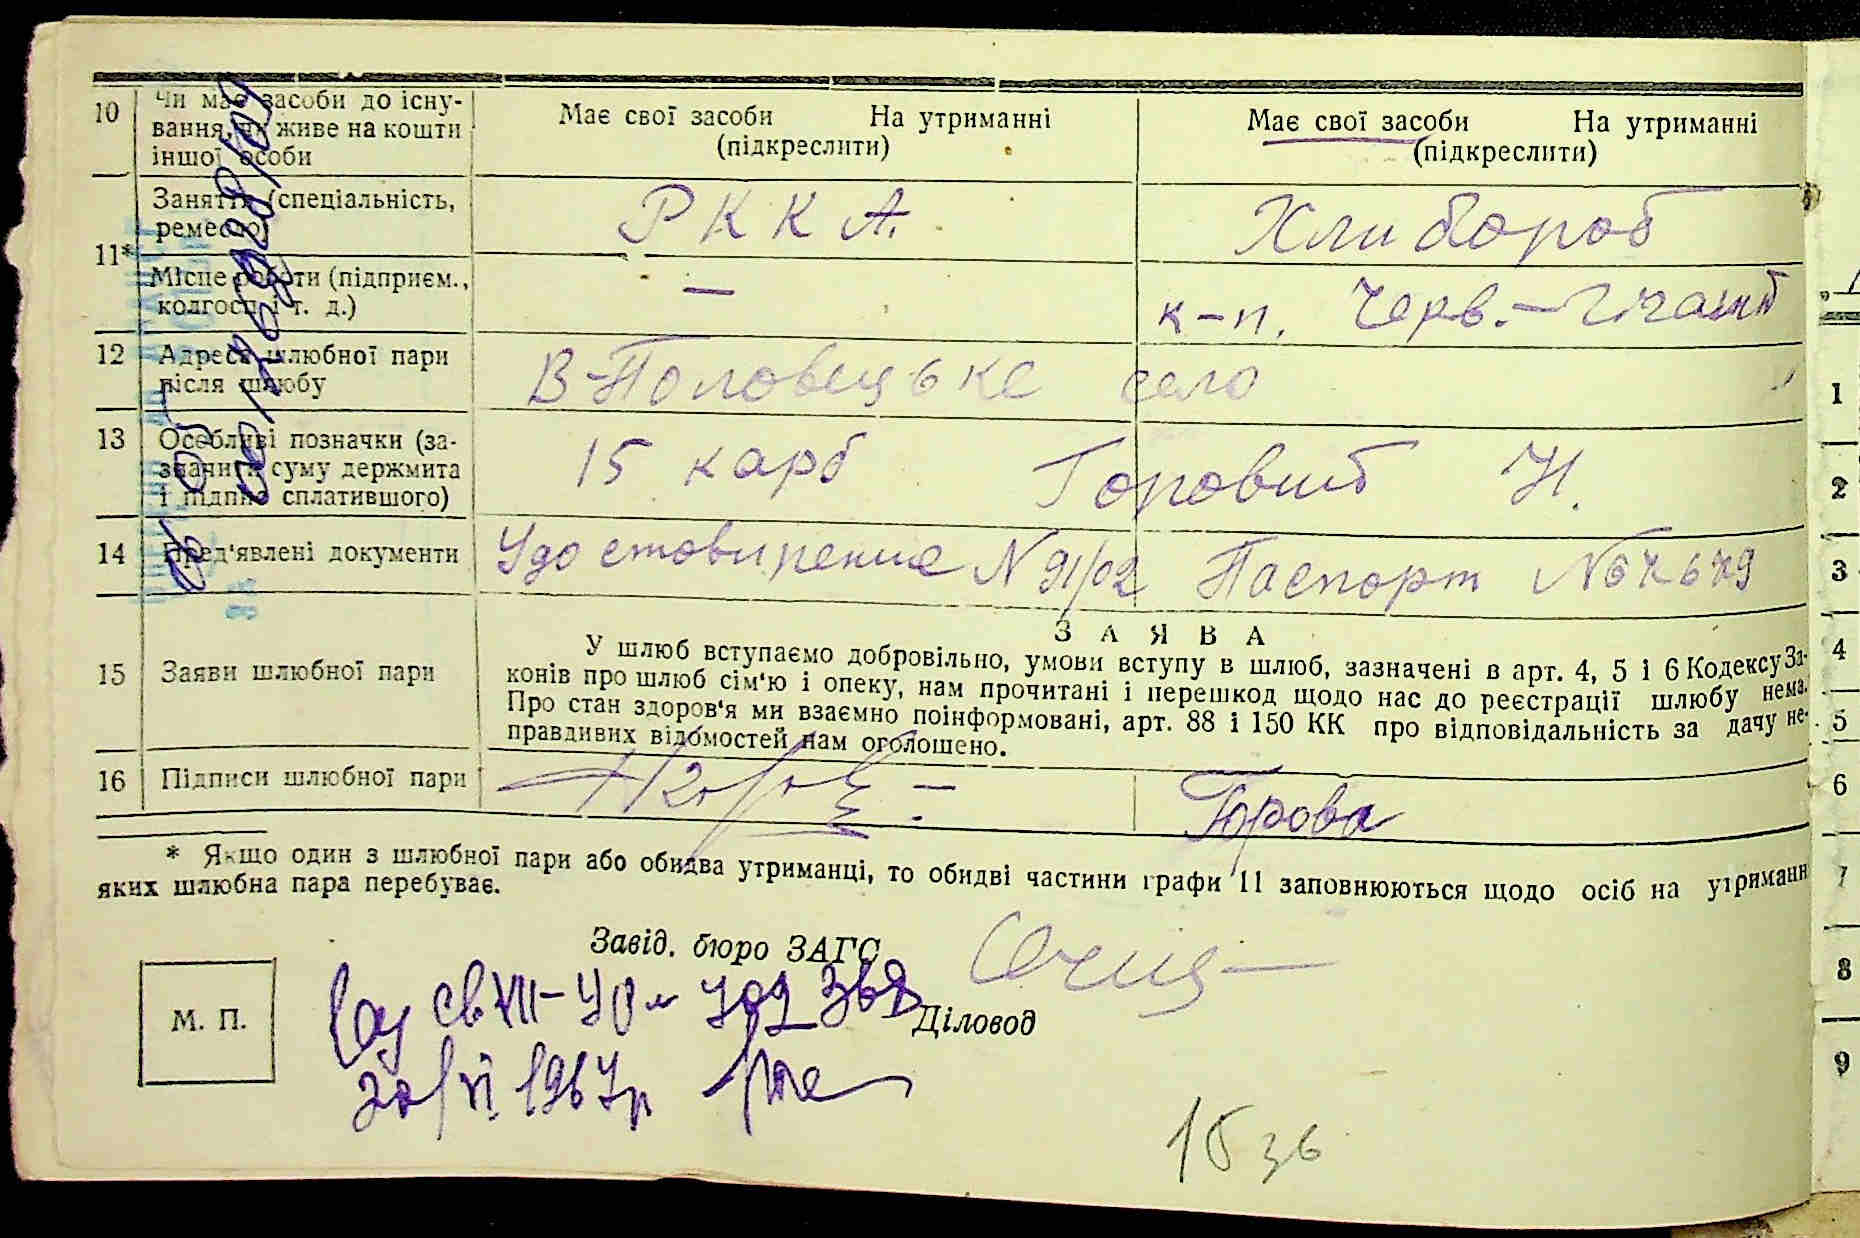 10 Чи має засоби до існування, чи живе на кошти іншої особи
Має свої засоби На утриманні
(підкреслити)
Має свої засоби На утриманні
(підкреслити)
11*
Заняття (спеціальність, ремесло)
РККА.
Хлибороб
Місце роботи (підприєм., колгосп і т. д.)
—
к-п. Черв.-
12 Адреса шлюбної пари після шлюбу
В-Половецьке село
13 Особливі позначки (зазначити суму держмита і підпис сплатившого)
15 карб Горовий Н.
14 Пред'явлені документи
Удостовирение N 91/02
Паспорт №67679
15 Заяви шлюбної пари
ЗАЯВА
У шлюб вступаємо добровільно, умови вступу в шлюб, зазначені в арт. 4, 5 і 6 Кодексу За-
конів про шлюб сім'ю і опеку, нам прочитані і перешкод щодо нас до реєстрації шлюбу нема.
Про стан здоров'я ми взаємно поінформовані, арт. 88 і 150 КК про відповідальність за дачу не-
правдивих відомостей нам оголошено.
16 Підписи шлюбної пари
Горова
* Якщо один з шлюбної пари або обидва утриманці, то обидві частини графи 11 заповнюються щодо осіб на утриманн
яких шлюбна пара перебуває.
Завід. бюро ЗАГС
Діловод
М. П.
20/VI 1967р
15
1
2
3
4
5
6
7
8
9